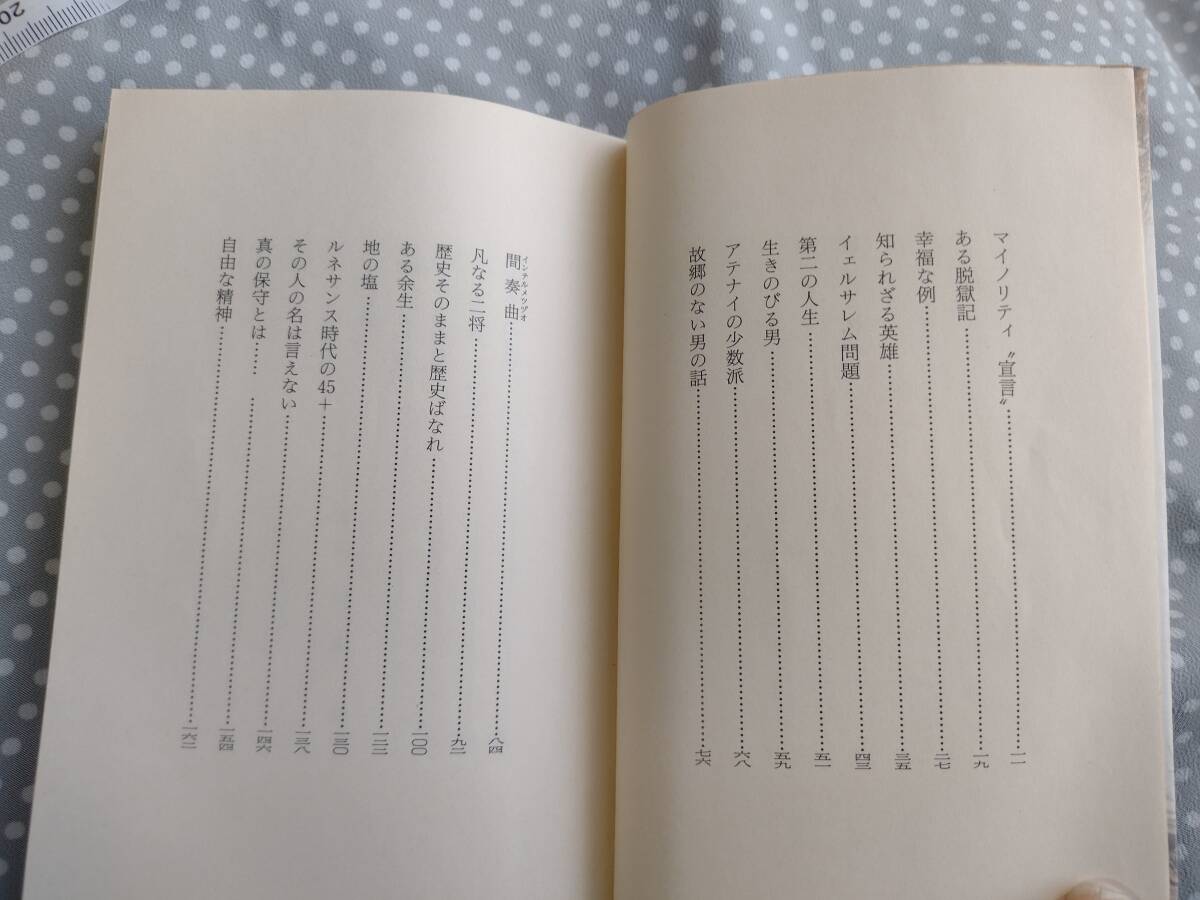 マイノリティ〝宣言〟……一一
ある脱獄記……一九
幸福な例……二七
知られざる英雄……三五
イェルサレム問題……四三
第二の人生……五一
生きのびる男……五九
アテナイの少数派……六八
故郷のない男の話……七六
間奏曲インテルメッツオ……八四
凡なる二将……九二
歴史そのままと歴史ばなれ……一〇〇
ある余生……一二二
地の塩……一三〇
ルネサンス時代の45＋……一三八
その人の名は言えない……一四六
真の保守とは……　……一五四
自由な精神……一六二
20